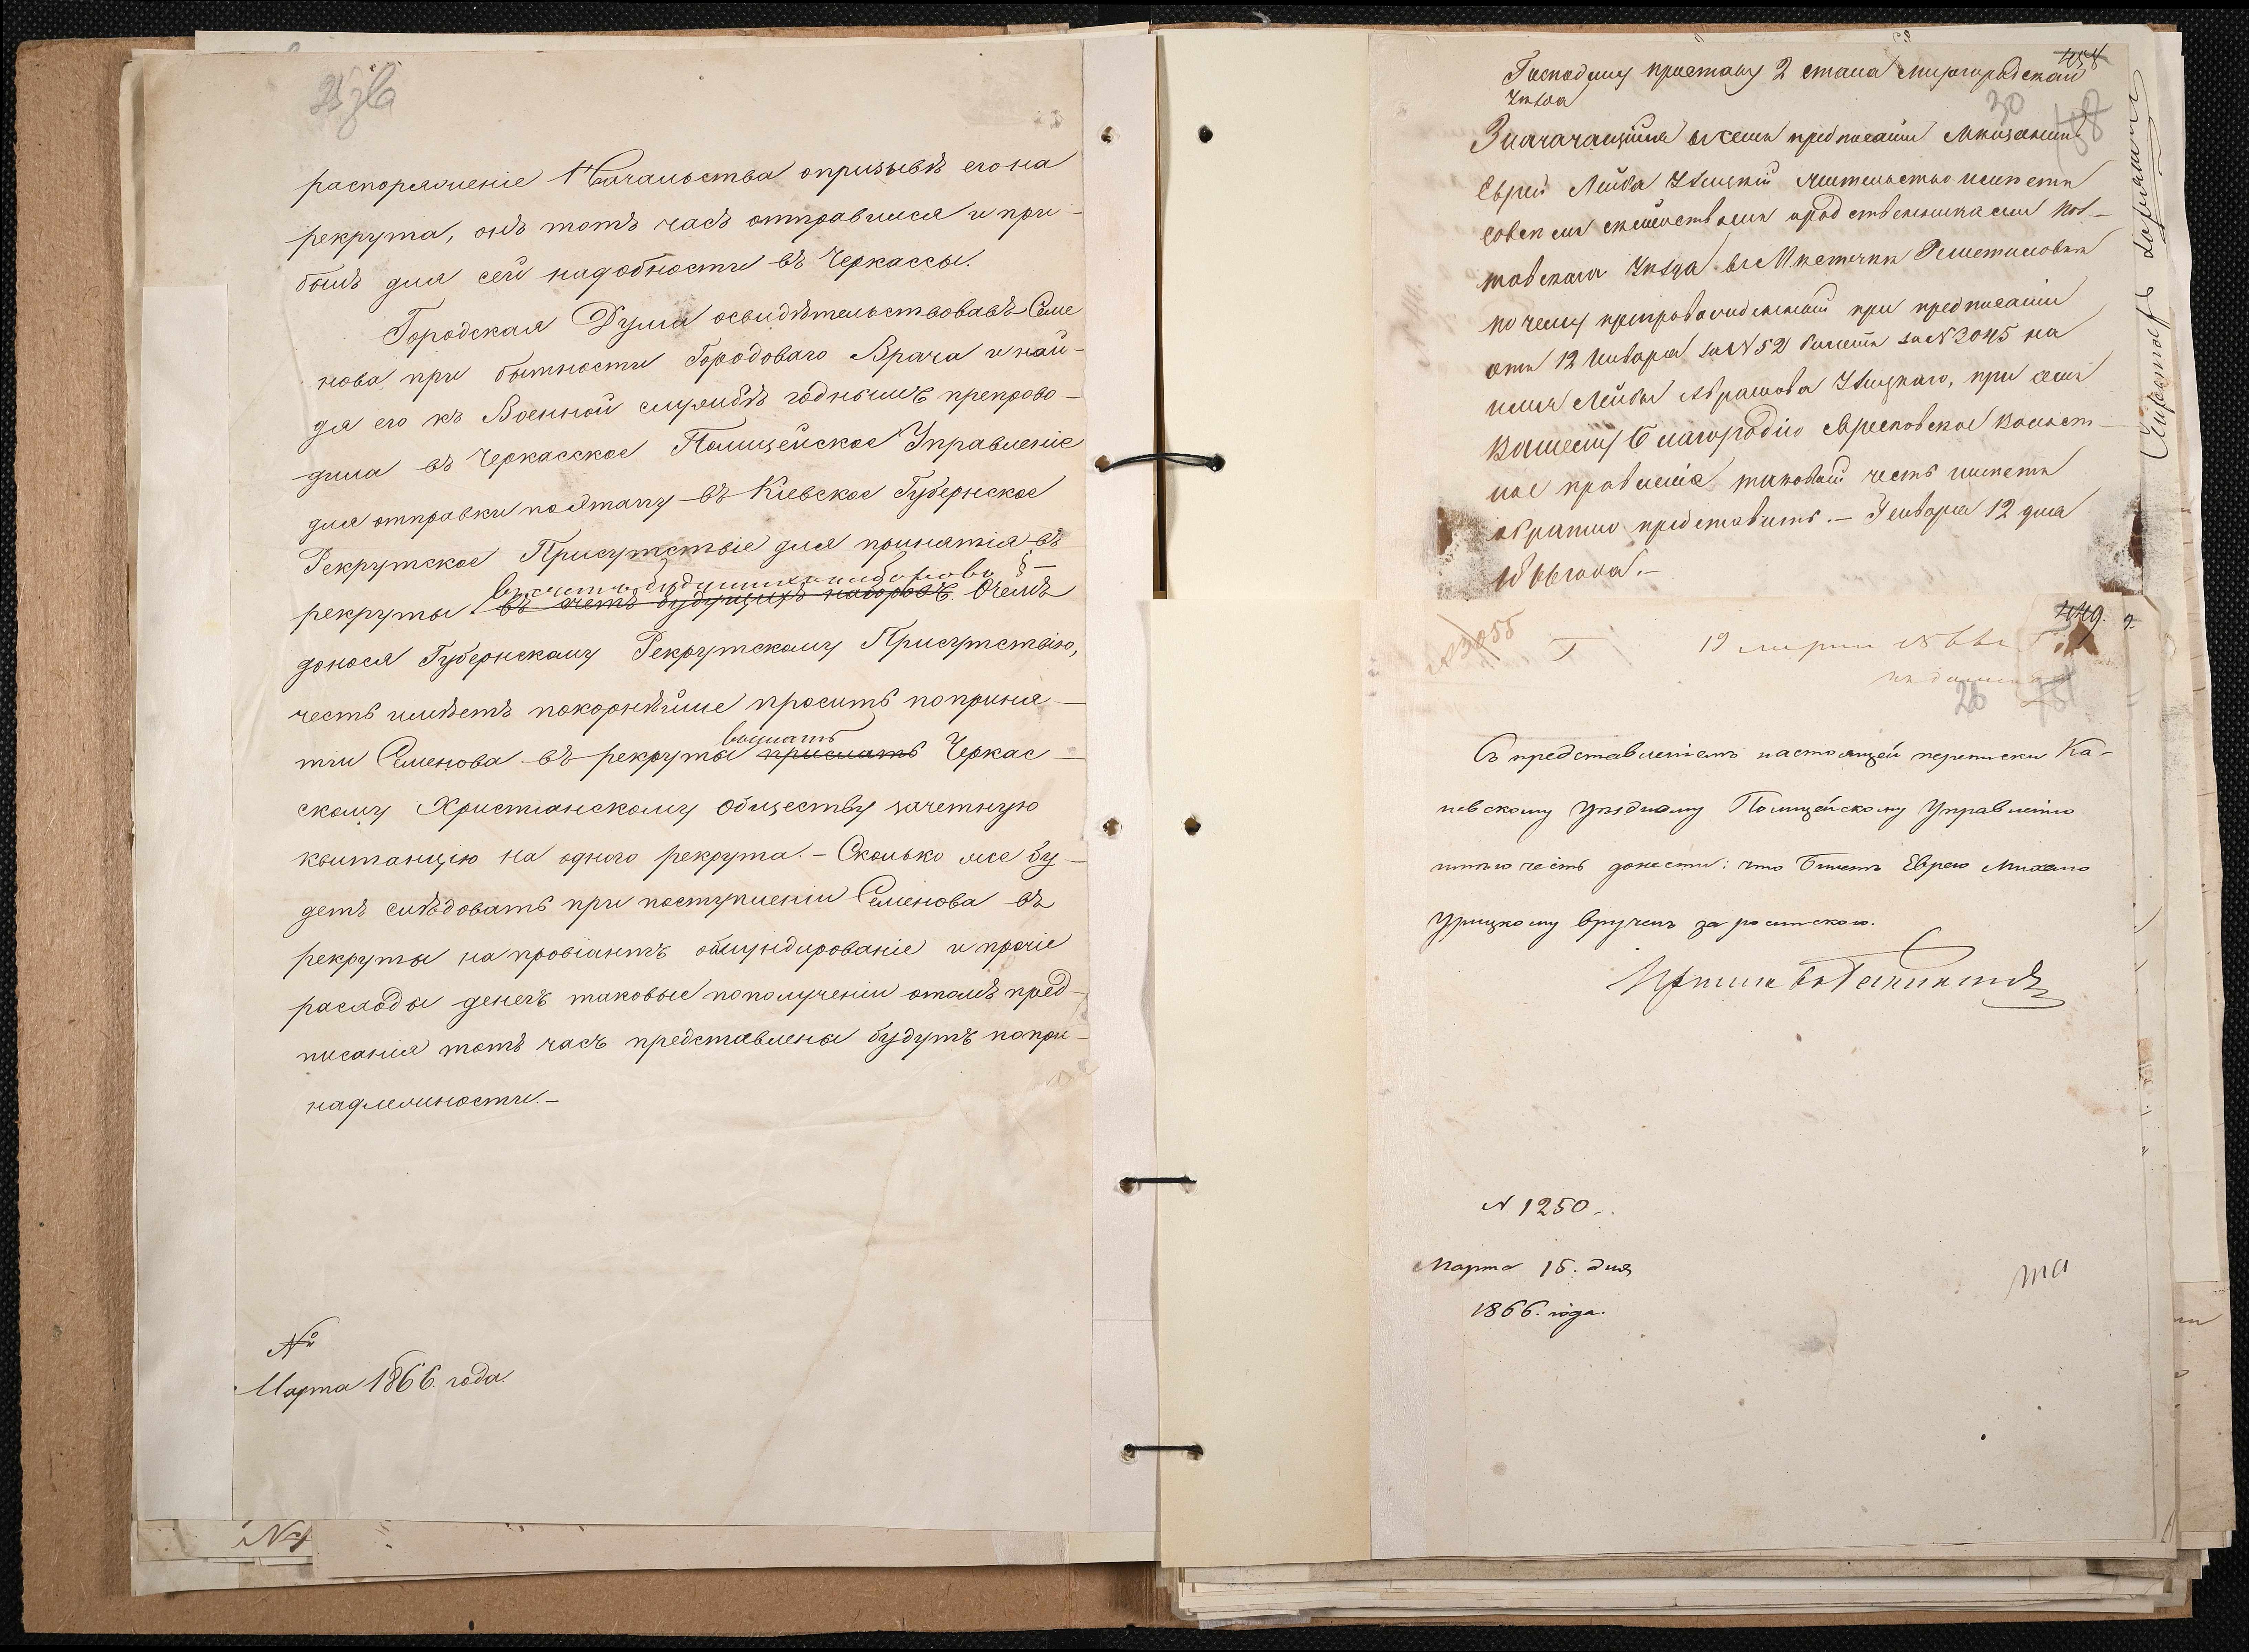 распоряженіе Начальства опризывѣ егона
рекрута, онъ тотъ часъ отправился и при-
былъ для сей надобности въ Черкассы.
Городская Дума освидѣтельствовавъ Семе
нова при бытности Городоваго Врача и най-
дя его къ Военной службѣ годнымъ препрово-
дила въ Черкасское Полицейское Управленіе
для отправки поэтапу въ Кіевское Губернское
Рекрутское Присутствіе для принятія въ
въ счетъ будущихъ наборовъ §-
рекруты въ счетъ будущихъ наборовъ Очемъ
донося Губернскому Рекрутскому Присутствію,
честь имѣетъ покорнѣйше просить поприня-
выслать
тіи Семенова въ рекруты прислать Черкас-
скому Христіанскому Обществу зачетную
квитанцію на одного рекрута.- Сколько же бу-
детъ слѣдовать при поступленіи Семенова въ
рекруты на провіантъ обмундированіе и прочіе
расходы денегъ таковые пополученіи отомъ пред-
писанія тотъ часъ представлены будутъ попри-
надлежности.-
№
Марта 1866 года.
Господину приставу 2 стана Миргородскаго
Уѣзда
30
Значачащійся въ семъ предписаніи Мѣщанинъ
Еврей Лейба Улицкій жительство имѣетъ
совсѣмъ семействомъ иродственниками Пол-
тавскаго Уѣзда въ Мѣстечкѣ Решетиловкѣ
почему препровожденный при предписаніи
отъ 12 Января за №52 билетъ за №2045 на
имя Лейбы Абрамова Улицкаго, при семъ
Вашему Благородію Волост-
ное правленіе таковый честь имѣетъ
обратно представить.- Генваря 12 дня
1866 года.-
449.
19 марта 1866 г.
26
Съ представленіемъ настоящей переписки Ка-
невскому Уѣздному Полицейскому Управленію
имѣю честь донести: что билетъ Еврею Михелю
Урицкому врученъ за роспискою.
N 1250.
Марта 15. дня
1866. года.